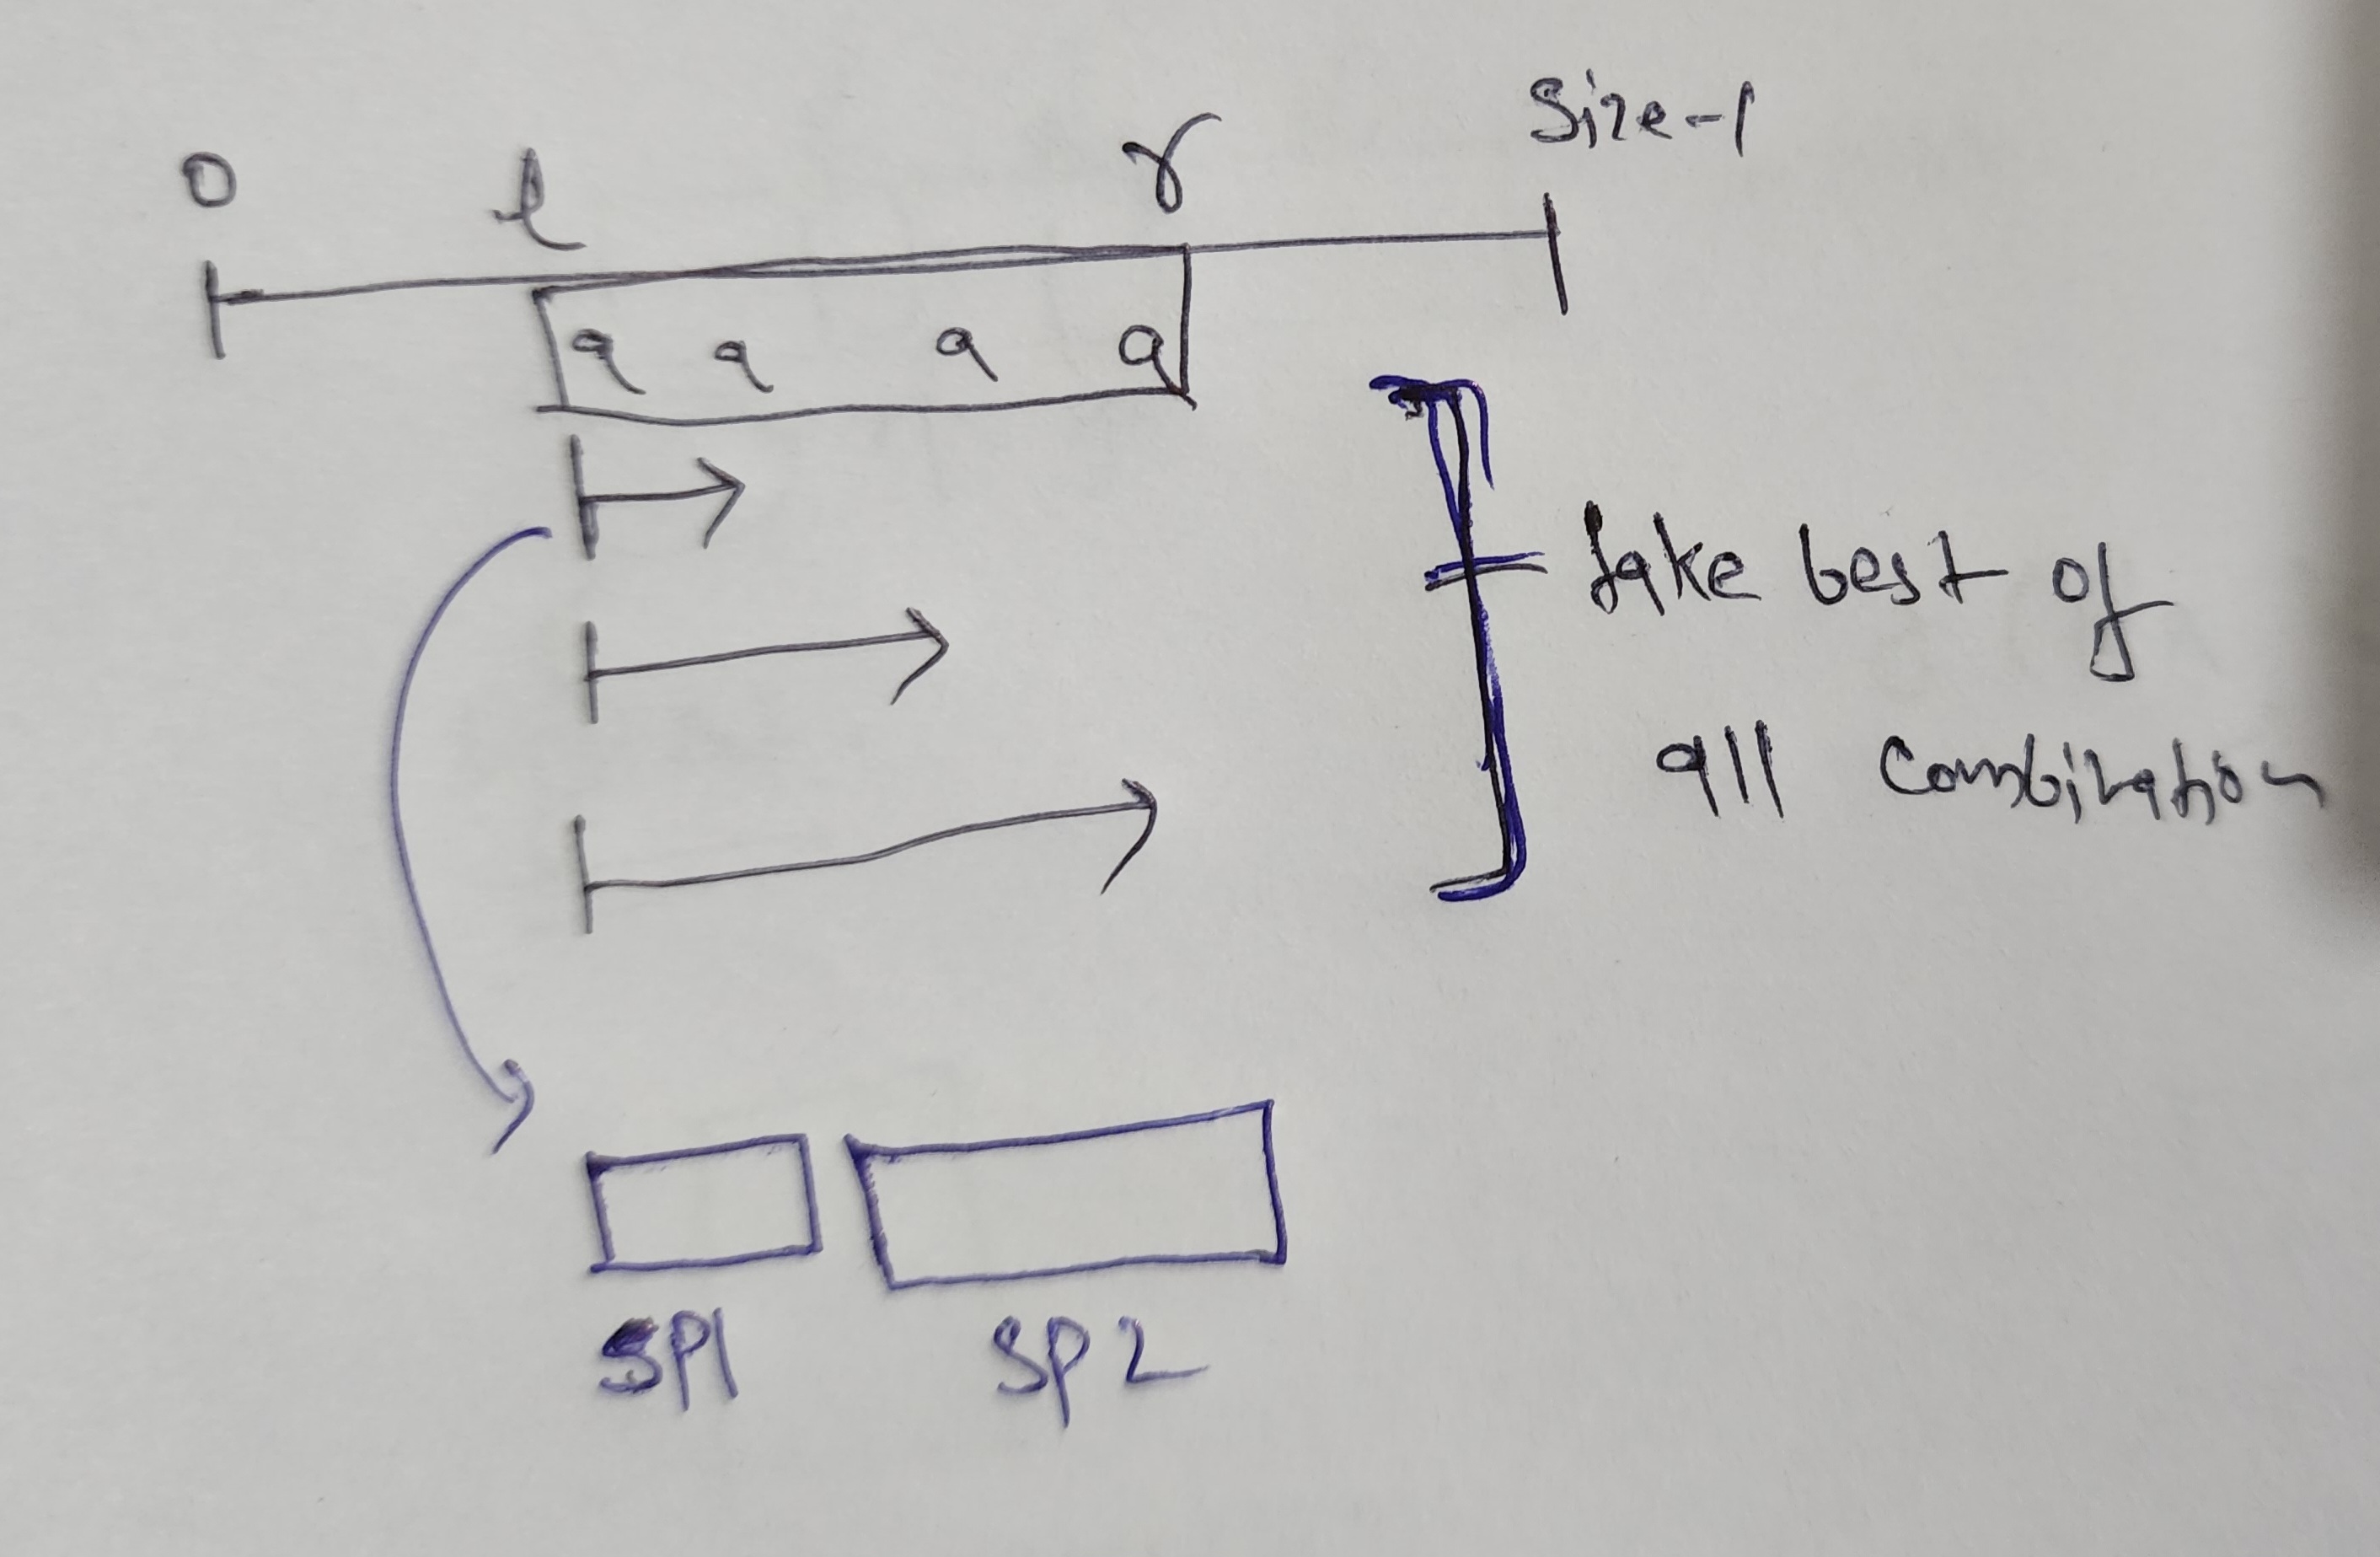 0 l r Size-1
a a a a
take best of
all Combination
SP1 SP2